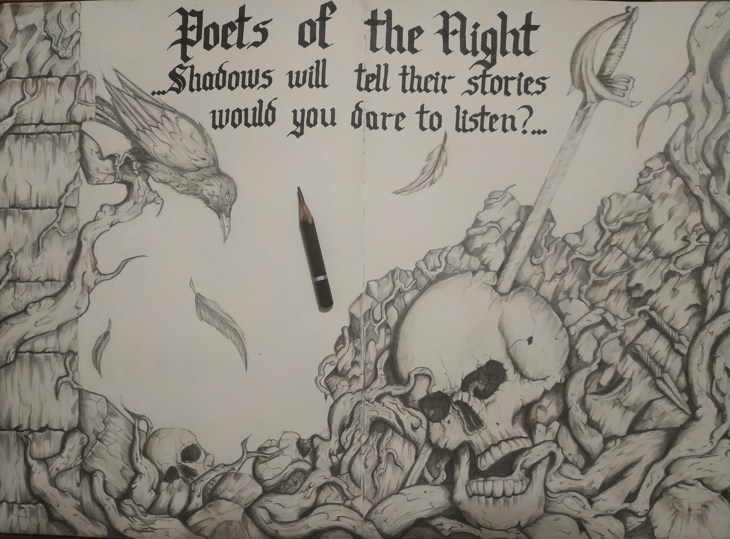 Poets of the Night
...Shadows will tell their stories
would you dare to listen?...